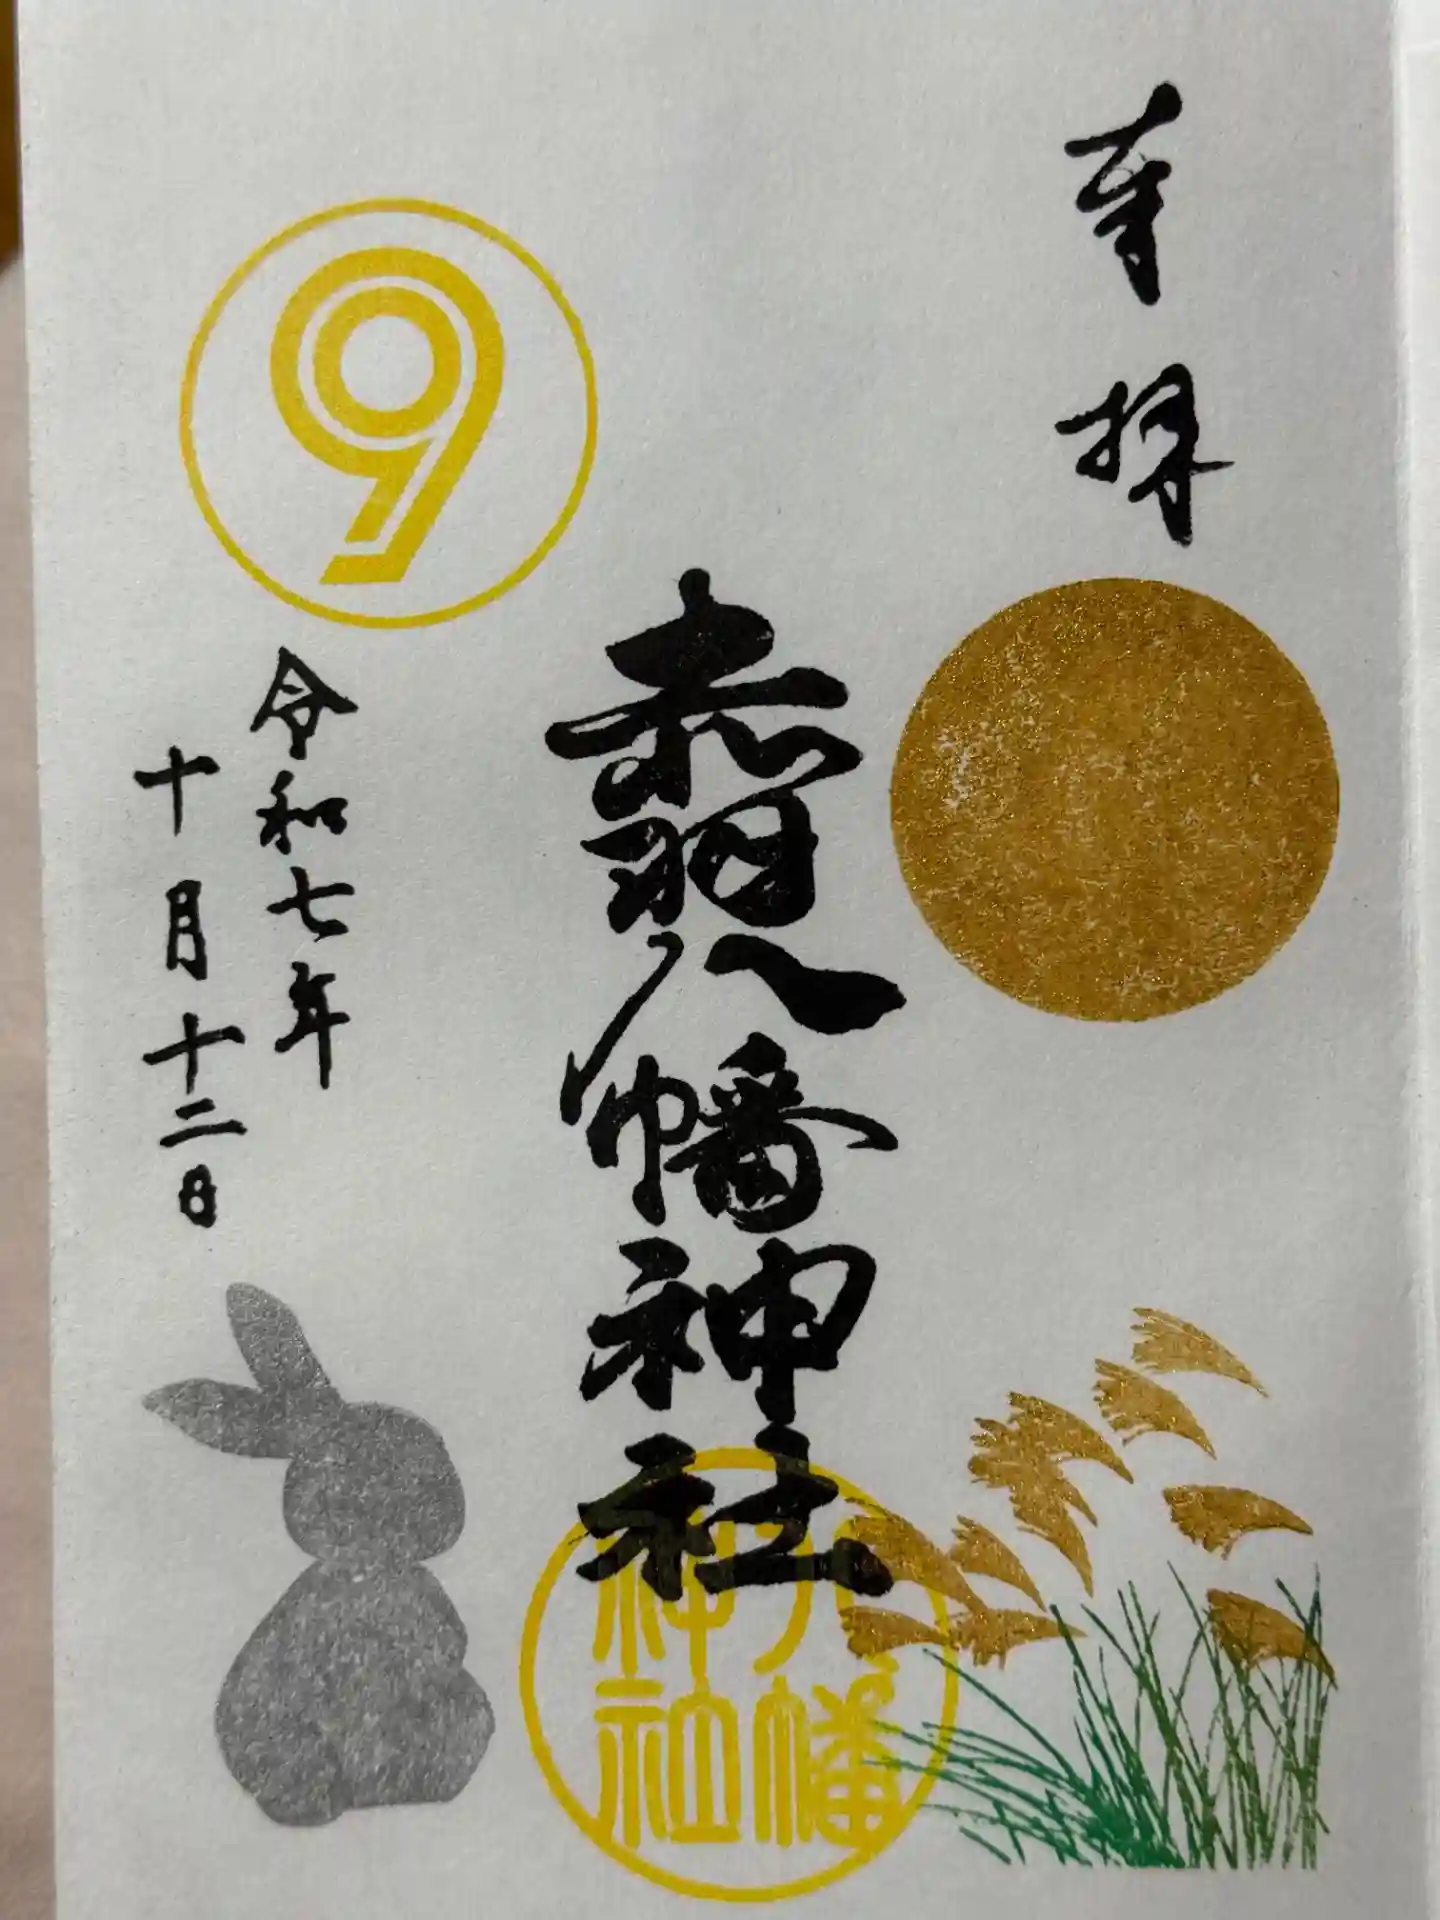 奉拝
赤羽八幡神社
八幡
神社
9
令和七年
十月十二日